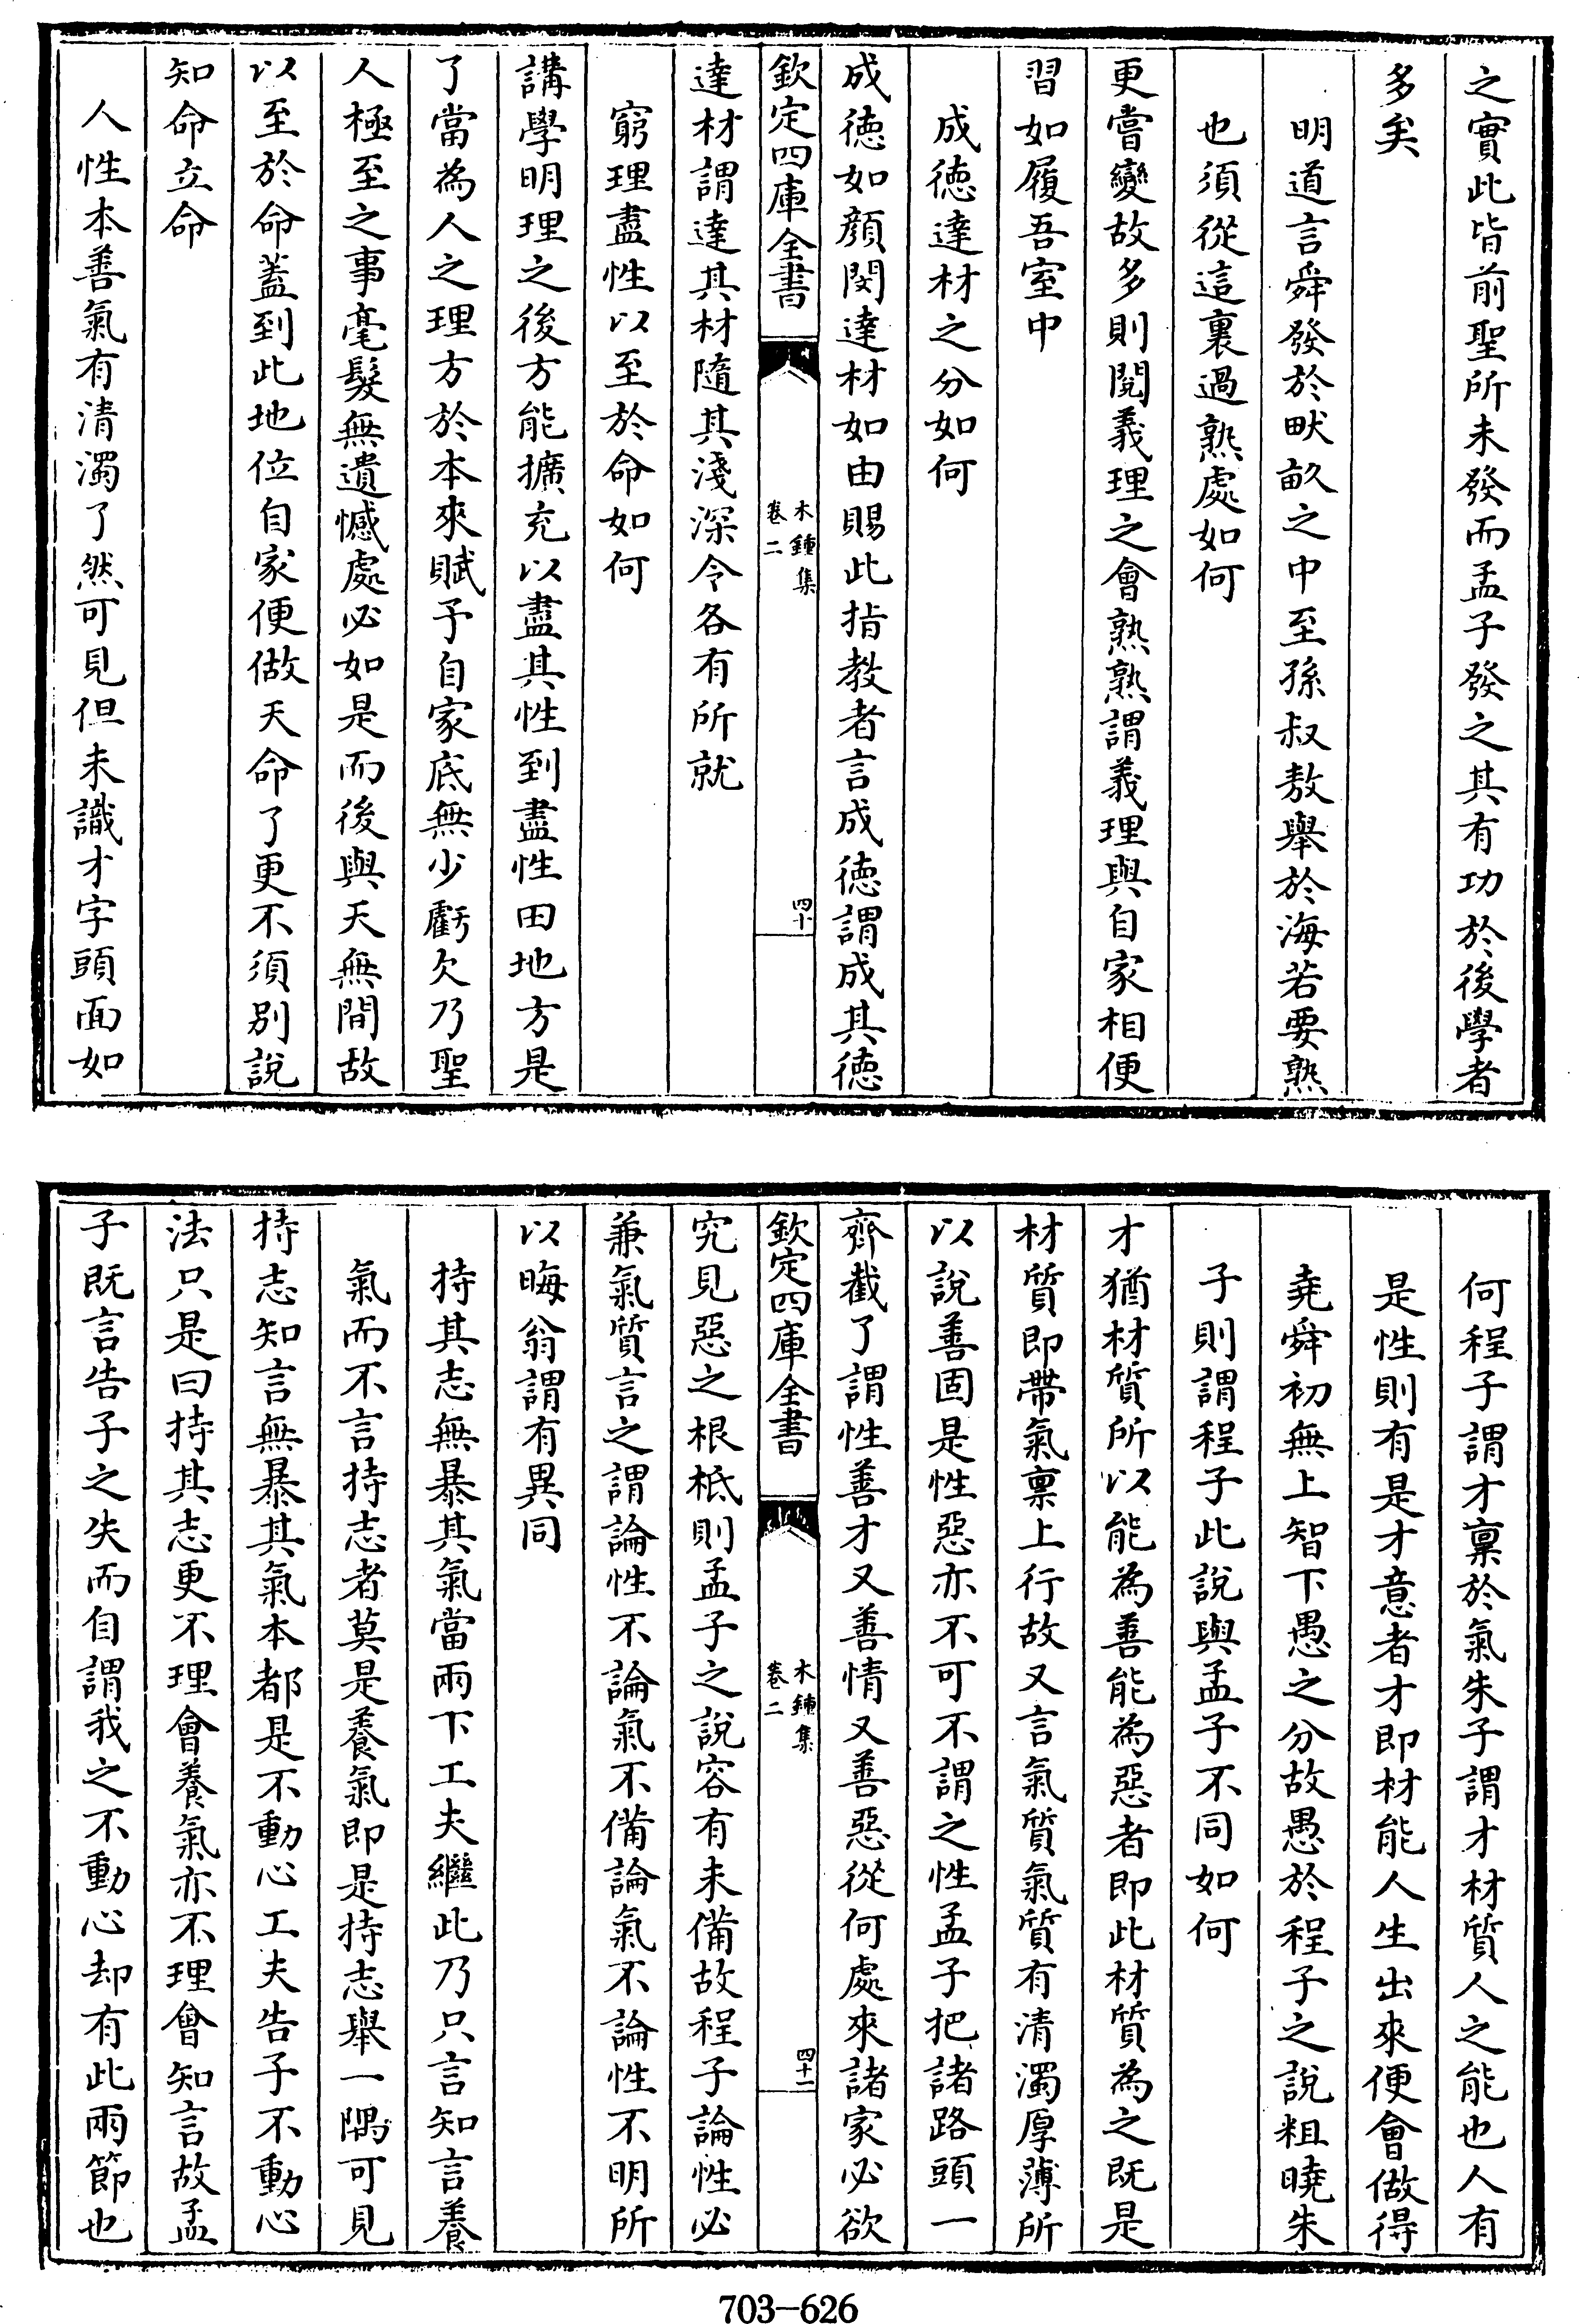 之實此皆前聖所未發而孟子發之其有功於後學者
多矣
明道言舜發於畎畝之中至孫叔敖舉於海若要熟
也須從這裏過熟處如何
更嘗變故多則閱義理之會熟熟謂義理與自家相便
習如履吾室中
成徳達材之分如何
成徳如顔閔達材如由賜此指教者言成徳謂成其徳
欽定四庫全書
木鍾集
卷二
四十
達材謂達其材隨其淺深令各有所就
窮理盡性以至於命如何
講學明理之後方能擴充以盡其性到盡性田地方是
了當為人之理方於本來賦予自家底無少虧欠乃聖
人極至之事毫髮無遺憾處必如是而後與天無間故
以至於命蓋到此地位自家便做天命了更不須別說
知命立命
人性本善氣有清濁了然可見但未識才字頭面如
何程子謂才稟於氣朱子謂才材質人之能也人有
是性則有是才意者才即材能人生出來便會做得
堯舜初無上智下愚之分故愚於程子之說粗曉朱
子則謂程子此說與孟子不同如何
才猶材質所以能為善能為惡者即此材質為之既是
材質即帶氣稟上行故又言氣質氣質有清濁厚薄所
以說善固是性惡亦不可不謂之性孟子把諸路頭一
齊截了謂性善才又善情又善惡從何處來諸家必欲
欽定四庫全書
木鍾集
卷二
四十一
究見惡之根柢則孟子之說容有未備故程子論性必
兼氣質言之謂論性不論氣不備論氣不論性不明所
以晦翁謂有異同
持其志無暴其氣當兩下工夫繼此乃只言知言養
氣而不言持志者莫是養氣即是持志舉一隅可見
持志知言無暴其氣本都是不動心工夫告子不動心
法只是曰持其志更不理會養氣亦不理會知言故孟
子既言告子之失而自謂我之不動心却有此兩節也
703-626